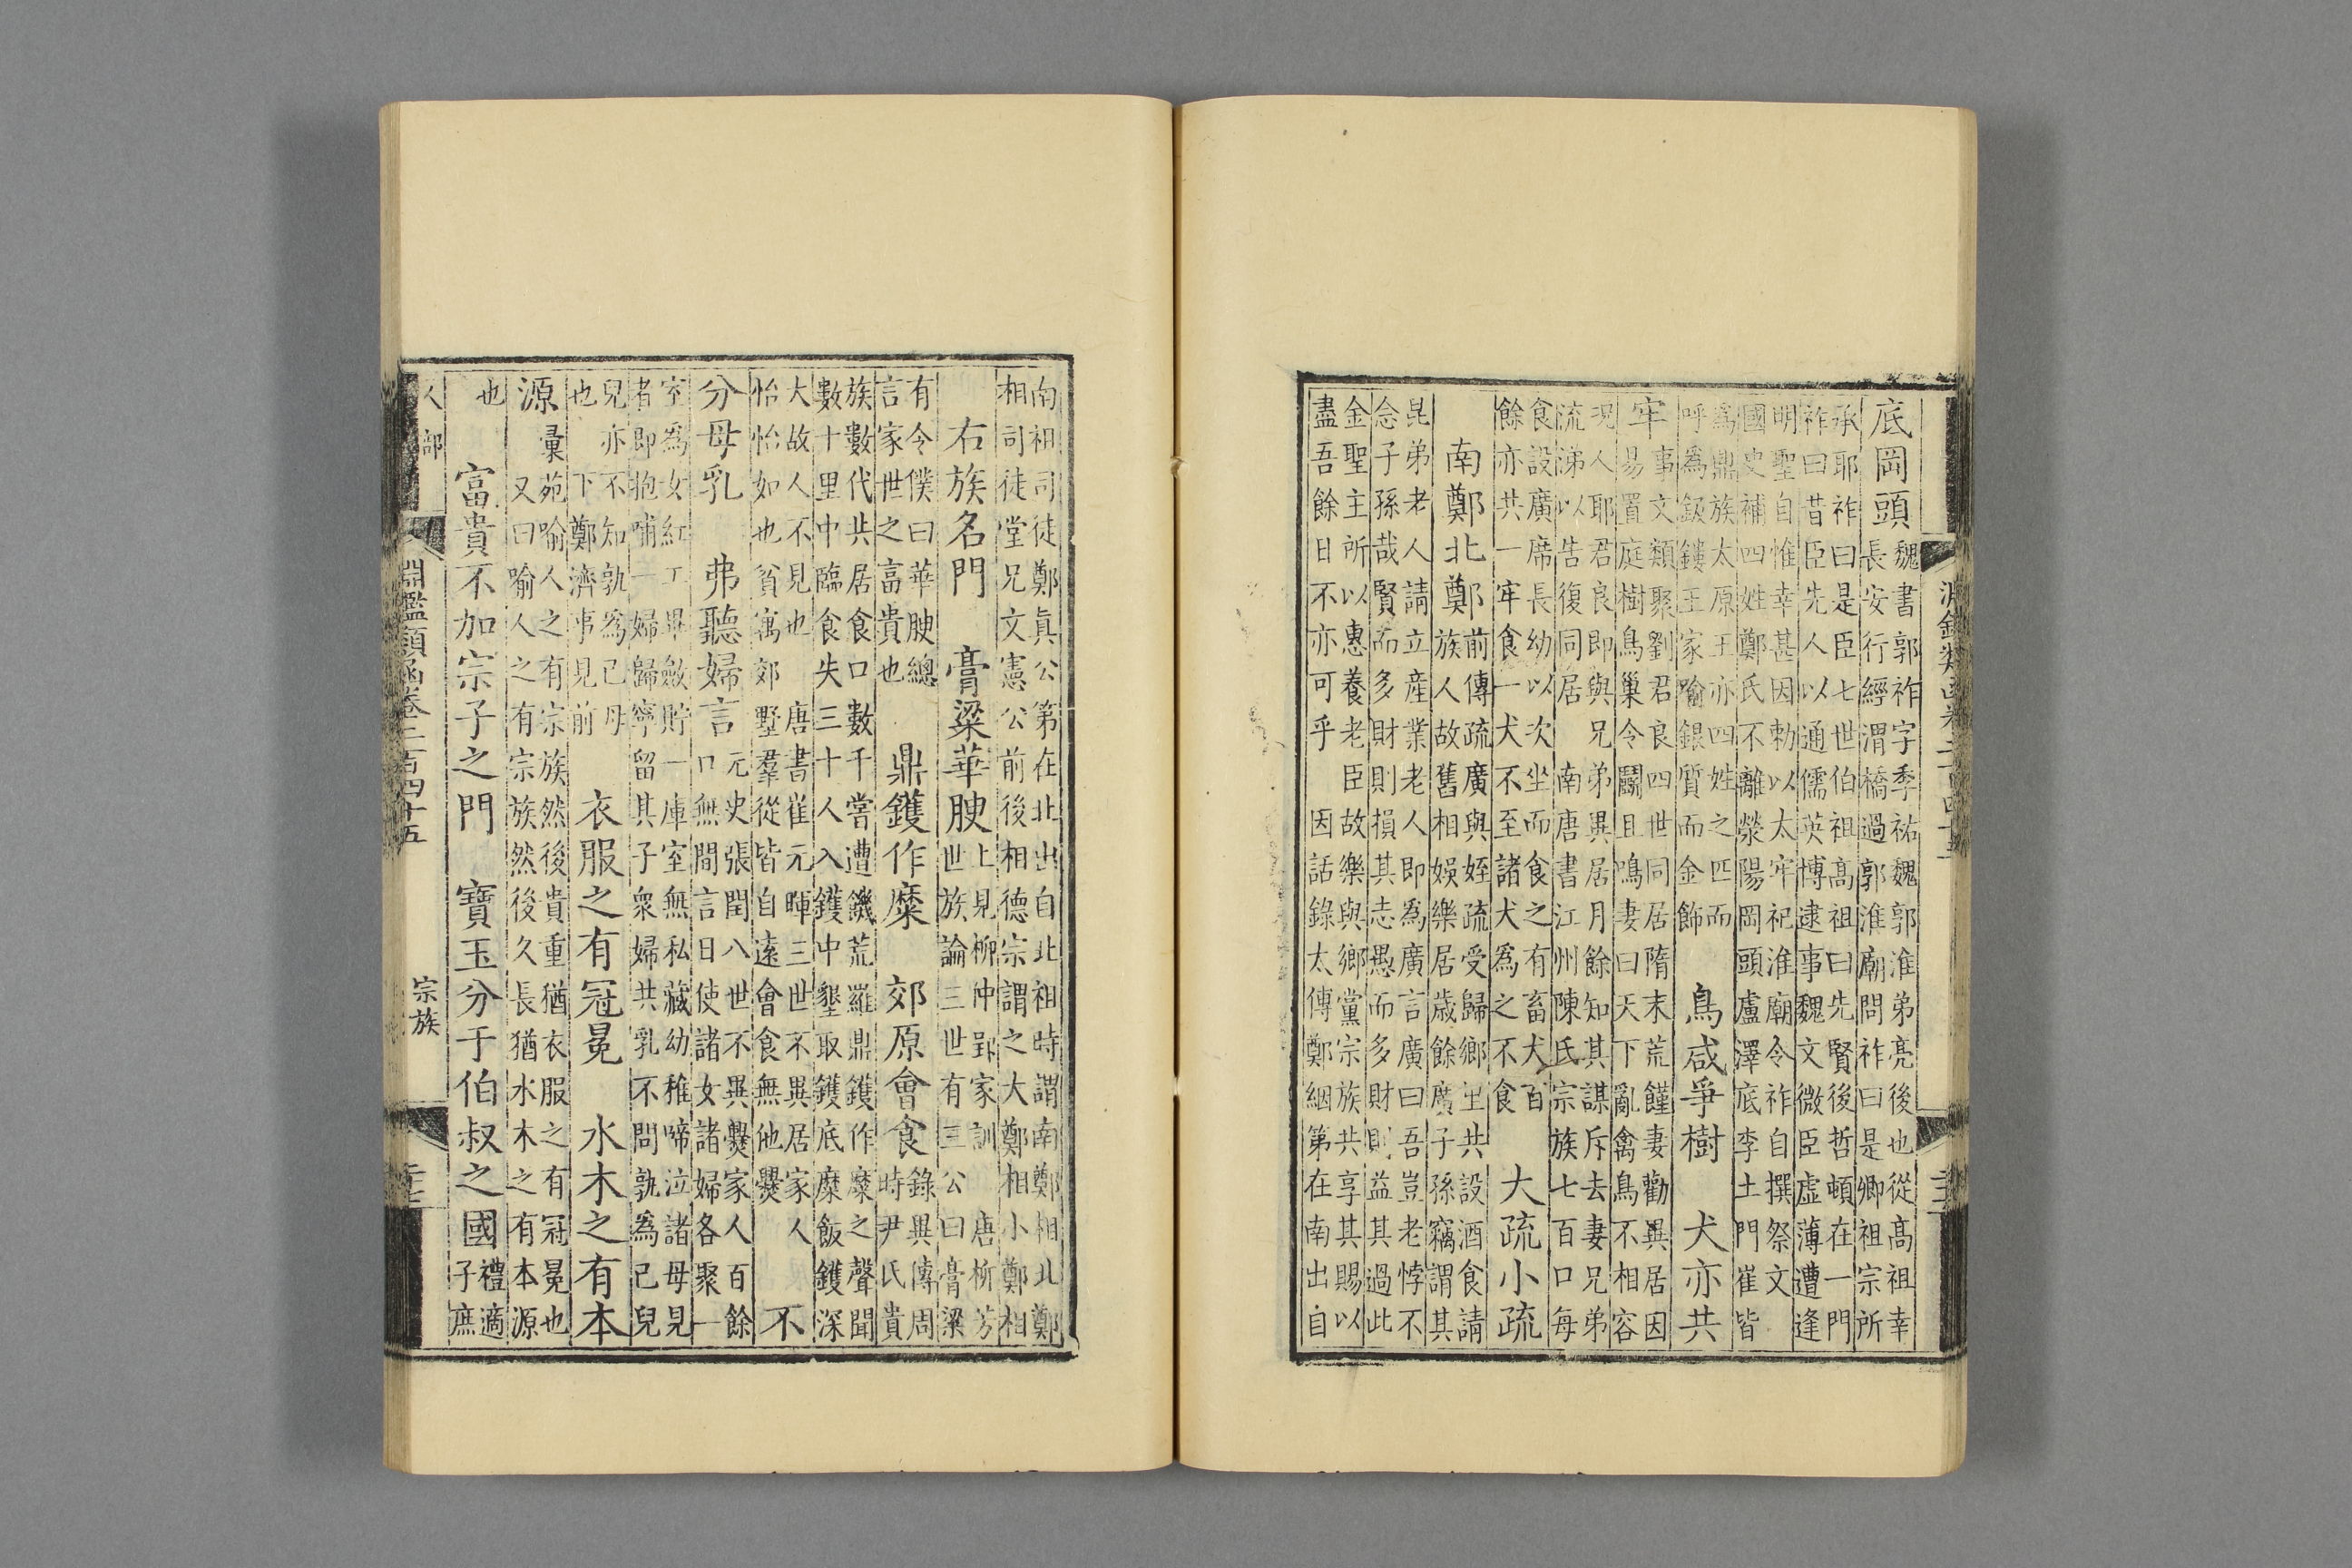 底岡頭
魏書郭祚字季祐魏郭淮弟亮後也從高祖幸
長安行經渭橋過郭淮廟問祚曰是卿祖宗所
承耶祚曰是臣七世伯祖高祖曰先賢後哲頓在一門
祚曰昔臣先人以通儒英博逮事魏文微臣虛薄遭逢
明聖自惟幸甚因勅以太牢祀淮廟令祚自撰祭文
國史補四姓鄭氏不離滎陽岡頭盧澤底李土門崔皆
爲鼎族太原王亦四姓之匹而
呼爲鈒鏤王家喻銀質而金飾
鳥咸爭樹　犬亦共
牢
事文類聚劉君良四世同居隋末荒饉妻勸異居因
易置庭樹鳥巢令鬭且鳴妻曰天下亂禽鳥不相容
况人耶君良即與兄弟異居月餘知其謀斥去妻兄弟
流涕以告復同居　南唐書江州陳氏宗族七百口每
食設廣席長幼以次坐而食之有畜犬百
餘亦共一牢食一犬不至諸犬爲之不食
大疏小疏
南鄭北鄭
前傳疏廣與姪疏受歸鄉里共設酒食請
族人故舊相娛樂居歲餘廣子孫竊謂其
昆弟老人請立産業老人即爲廣言廣曰吾豈老悖不
念子孫哉賢而多財則損其志愚而多財則益其過此
金聖主所以惠養老臣故樂與鄉黨宗族共享其賜以
盡吾餘日不亦可乎　因話錄太傅鄭絪第在南出自
南祖司徒鄭眞公第在北出自北祖時謂南鄭相北鄭
相司徒堂兄文憲公前後相德宗謂之大鄭相小鄭相
右族名門　膏粱華腴
上見柳沖郢家訓　唐柳芳
世族論三世有三公曰膏粱
有令僕曰華腴總
言家世之富貴也
鼎鑊作糜　郊原會食
錄異傳周
時尹氏貴
族數代共居食口數千嘗遭饑荒羅鼎鑊作糜之聲聞
數十里中臨食失三十人入鑊中墾取鑊底糜飯鑊深
大故人不見也　唐書崔元暐三世不異居家人
怡怡如也貧寓郊墅羣從皆自遠會食無他爨
不
分母乳　弗聽婦言
元史張閏八世不異爨家人百餘
口無間言日使諸女諸婦各聚一
室爲女紅工畢斂貯一庫室無私藏幼稚啼泣諸母見
者即抱哺一婦歸寧留其子衆婦共乳不問孰爲己兒
兒亦不知孰爲己母
也　下鄭濟事見前
衣服之有冠冕　水木之有本
源
彙苑喻人之有宗族然後貴重猶衣服之有冠冕也
又曰喻人之有宗族然後久長猶水木之有本源
也
富貴不加宗子之門　寶玉分于伯叔之國
禮適
子庶
人部
淵鑑類函卷二百四十五
宗族